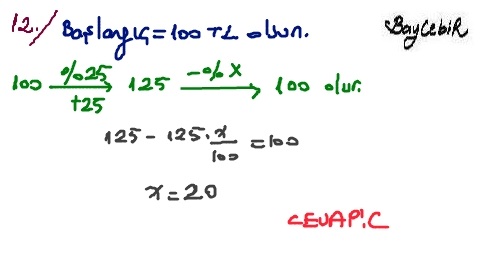 12./ Başlangıç = 100 TL olsun.
BayCebiR
100 %25 +25 → 125 -%x → 100 olur.
125 - 125 . x/100 = 100
x = 20
CEVAP: C